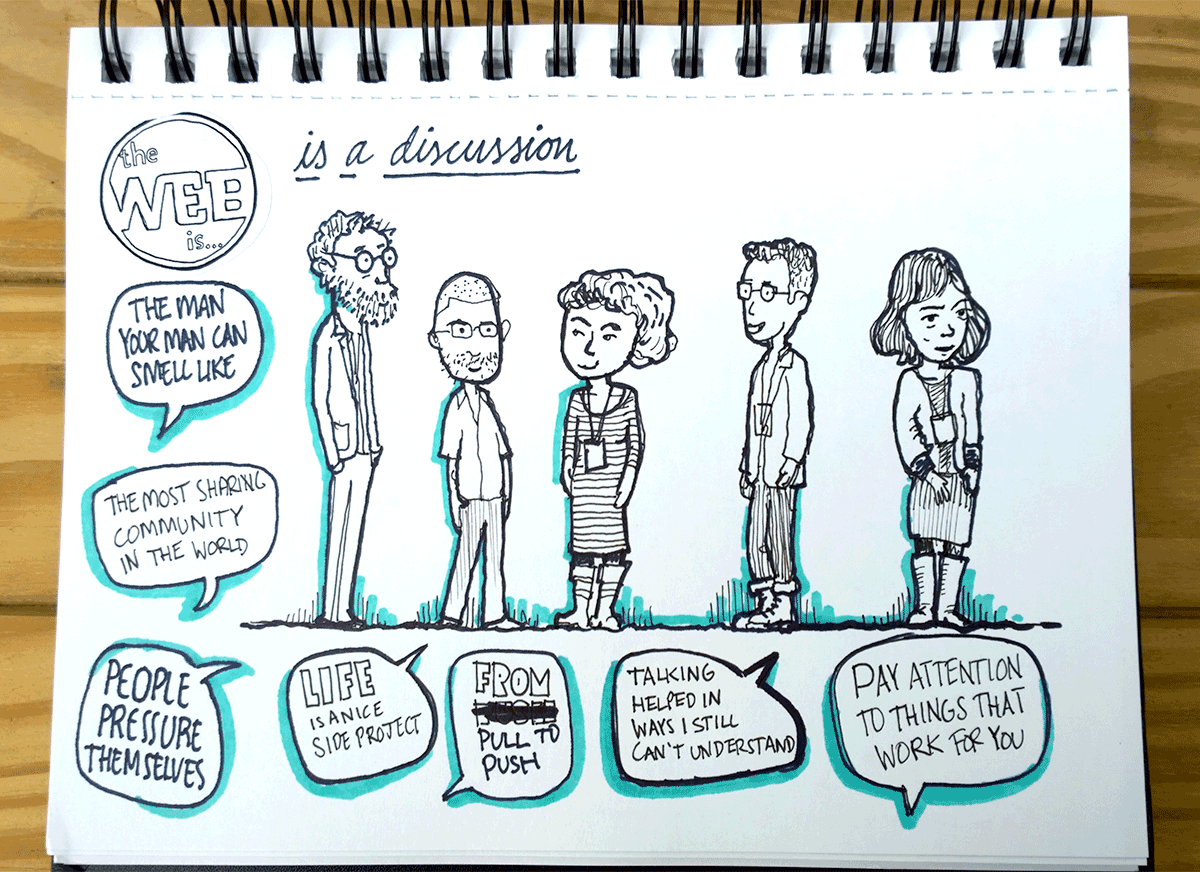 the
WEB
is...
is a discussion
THE MAN
YOUR MAN CAN
SMELL LIKE
THE MOST SHARING
COMMUNITY
IN THE WORLD
PEOPLE
PRESSURE
THEMSELVES
LIFE
IS A NICE
SIDE PROJECT
FROM
PULL TO
PUSH
TALKING
HELPED IN
WAYS I STILL
CAN'T UNDERSTAND
PAY ATTENTION
TO THINGS THAT
WORK FOR YOU